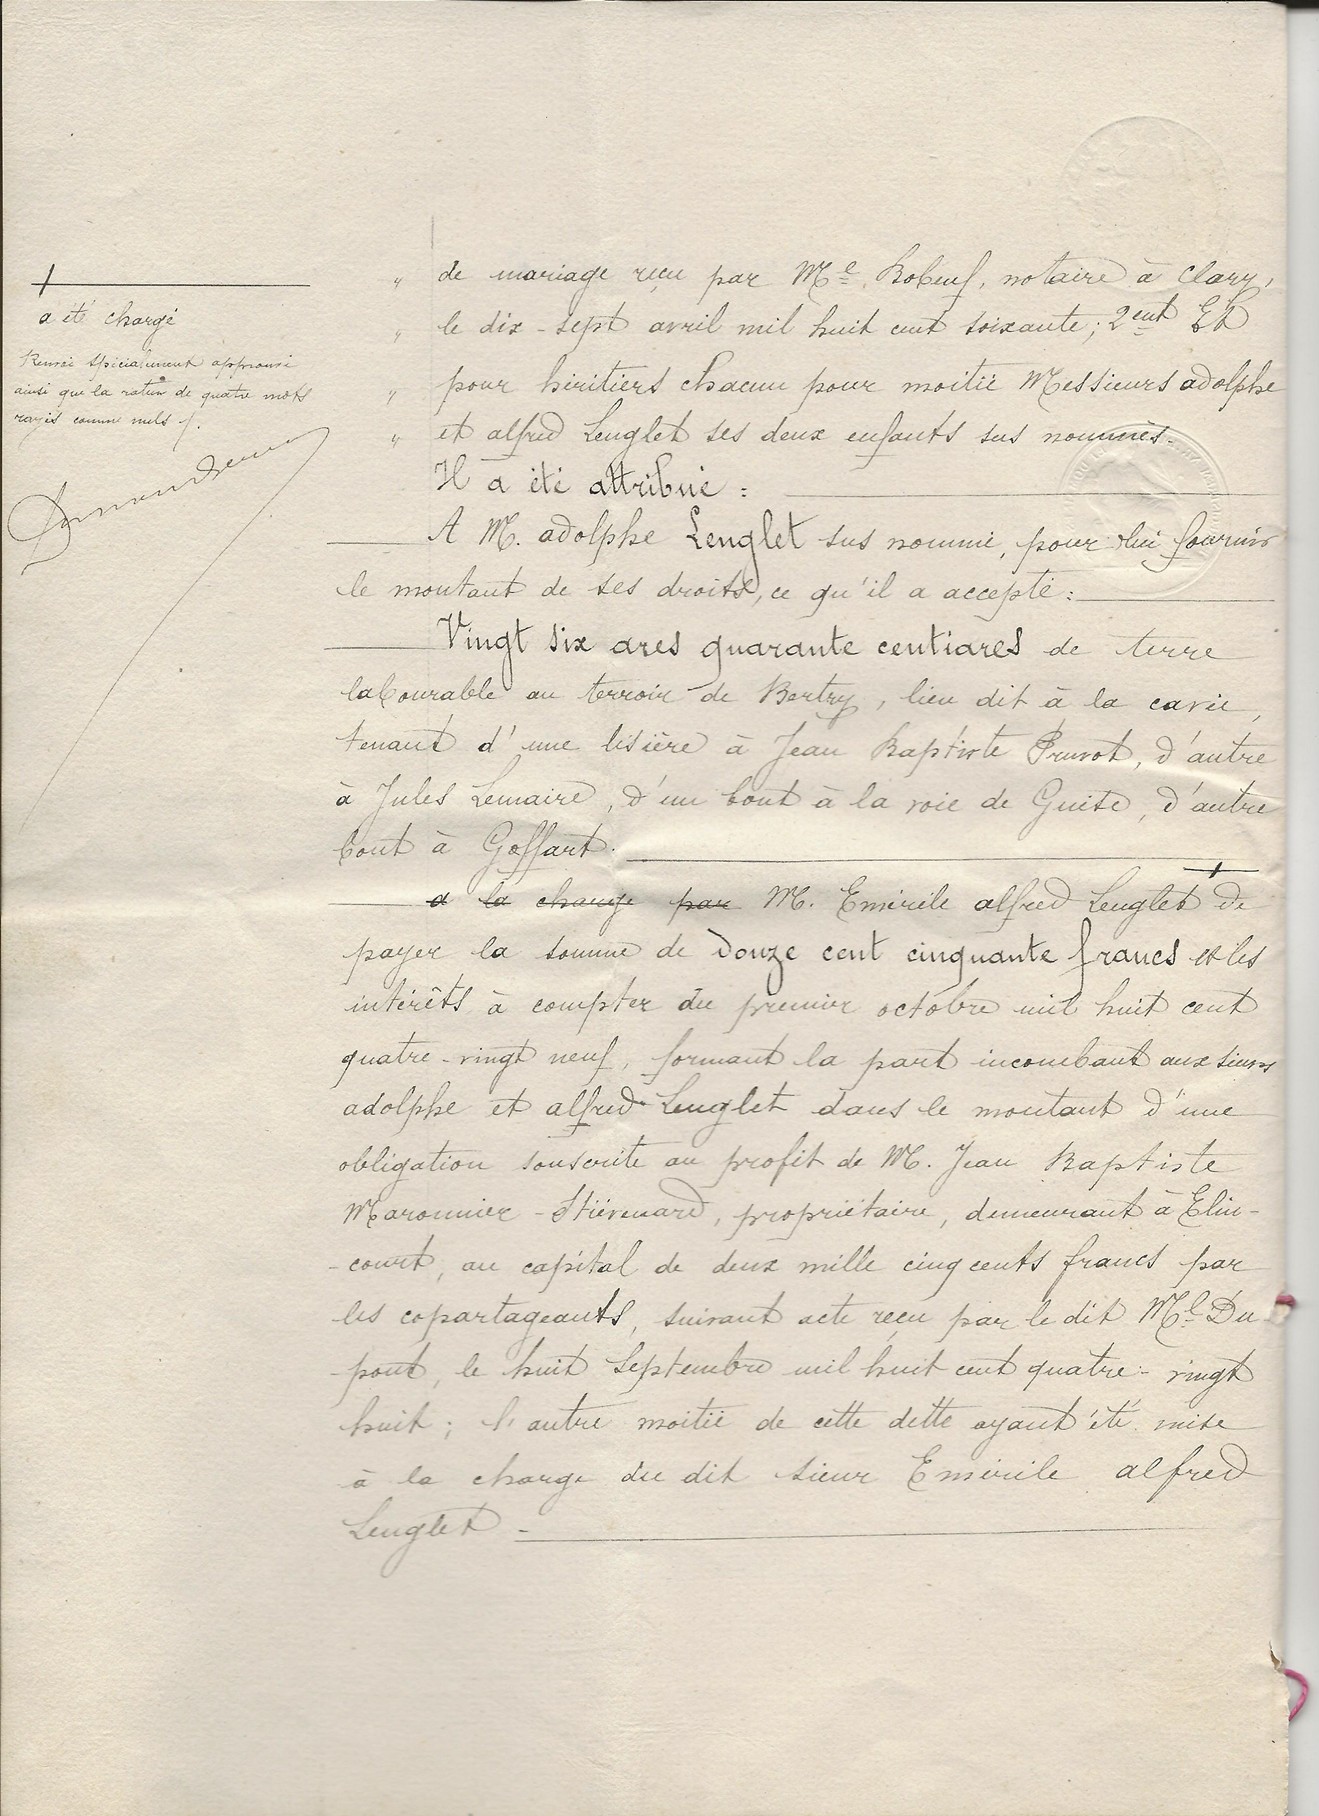 a été chargé
Renvoi spécialement approuvé
ainsi que la rature de quatre mots
rayés comme nuls /.
" de mariage reçu par Me Bobeuf, notaire à Clary,
" le dix-sept avril mil huit cent soixante; 2ent Et
" pour héritiers chacun pour moitié Messieurs adolphe
" et alfred Lenglet ses deux enfants sus nommés.
Il a été attribué :
A M. adolphe Lenglet sus nommé, pour lui fournir
le montant de ses droits, ce qu'il a accepté :
Vingt six ares quarante centiares de terre
labourable au terroir de Bertry, lieu dit à la cavée,
tenant d'une lisière à Jean Baptiste Pruvot, d'autre
à Jules Lemaire, d'un bout à la voie de Guise, d'autre
bout à Goffart.
a la charge par M. Emérile alfred Lenglet de
payer la somme de douze cent cinquante francs et les
intérêts à compter du premier octobre mil huit cent
quatre-vingt neuf, formant la part incombant aux sieurs
adolphe et alfred Lenglet dans le montant d'une
obligation souscrite au profit de M. Jean Baptiste
Maronnier-Stiévenard, propriétaire, demeurant à Elin-
-court, au capital de deux mille cinq cents francs par
les copartageants, suivant acte reçu par le dit Me Du-
-pont, le huit Septembre mil huit cent quatre-vingt
huit; l'autre moitié de cette dette ayant été mise
à la charge du dit sieur Emérile alfred
Lenglet -